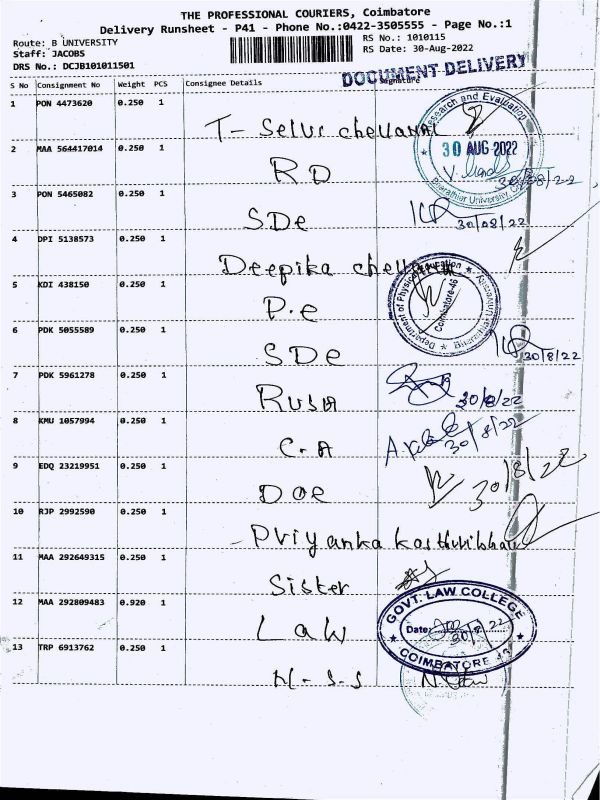 THE PROFESSIONAL COURIERS, Coimbatore
Delivery Runsheet - P41 - Phone No.:0422-3505555 - Page No.:1
Route: B UNIVERSITY
RS No.: 1010115
Staff: JACOBS
RS Date: 30-Aug-2022
DRS No.: DCJB101011501
DOCUMENT DELIVERY
S No Consignment No Weight PCS Consignee Details Signature
1 PON 4473620 0.250 1
T- Selvi
Research and Evaluation
30 AUG 2022
Bharathiar University
2 MAA 564417014 0.250 1
RD
30/08/22
3 PON 5465082 0.250 1
SDe
30/08/22
4 DPI 5138573 0.250 1
Deepika
Department of Physical Education
Coimbatore-46
Bharathiar University
5 KDI 438150 0.250 1
P.e
6 PDK 5055589 0.250 1
SDe
30/8/22
7 PDK 5961278 0.250 1
RUSA
30/8/22
8 KMU 1057994 0.250 1
C.A
30/8/22
9 EDQ 23219951 0.250 1
DOE
30/8/22
10 RJP 2992590 0.250 1
- Priyanka
11 MAA 292649315 0.250 1
Sister
12 MAA 292809483 0.920 1
Law
GOVT. LAW COLLEGE
Date: 30/8/22
COIMBATORE
13 TRP 6913762 0.250 1
N-S-S